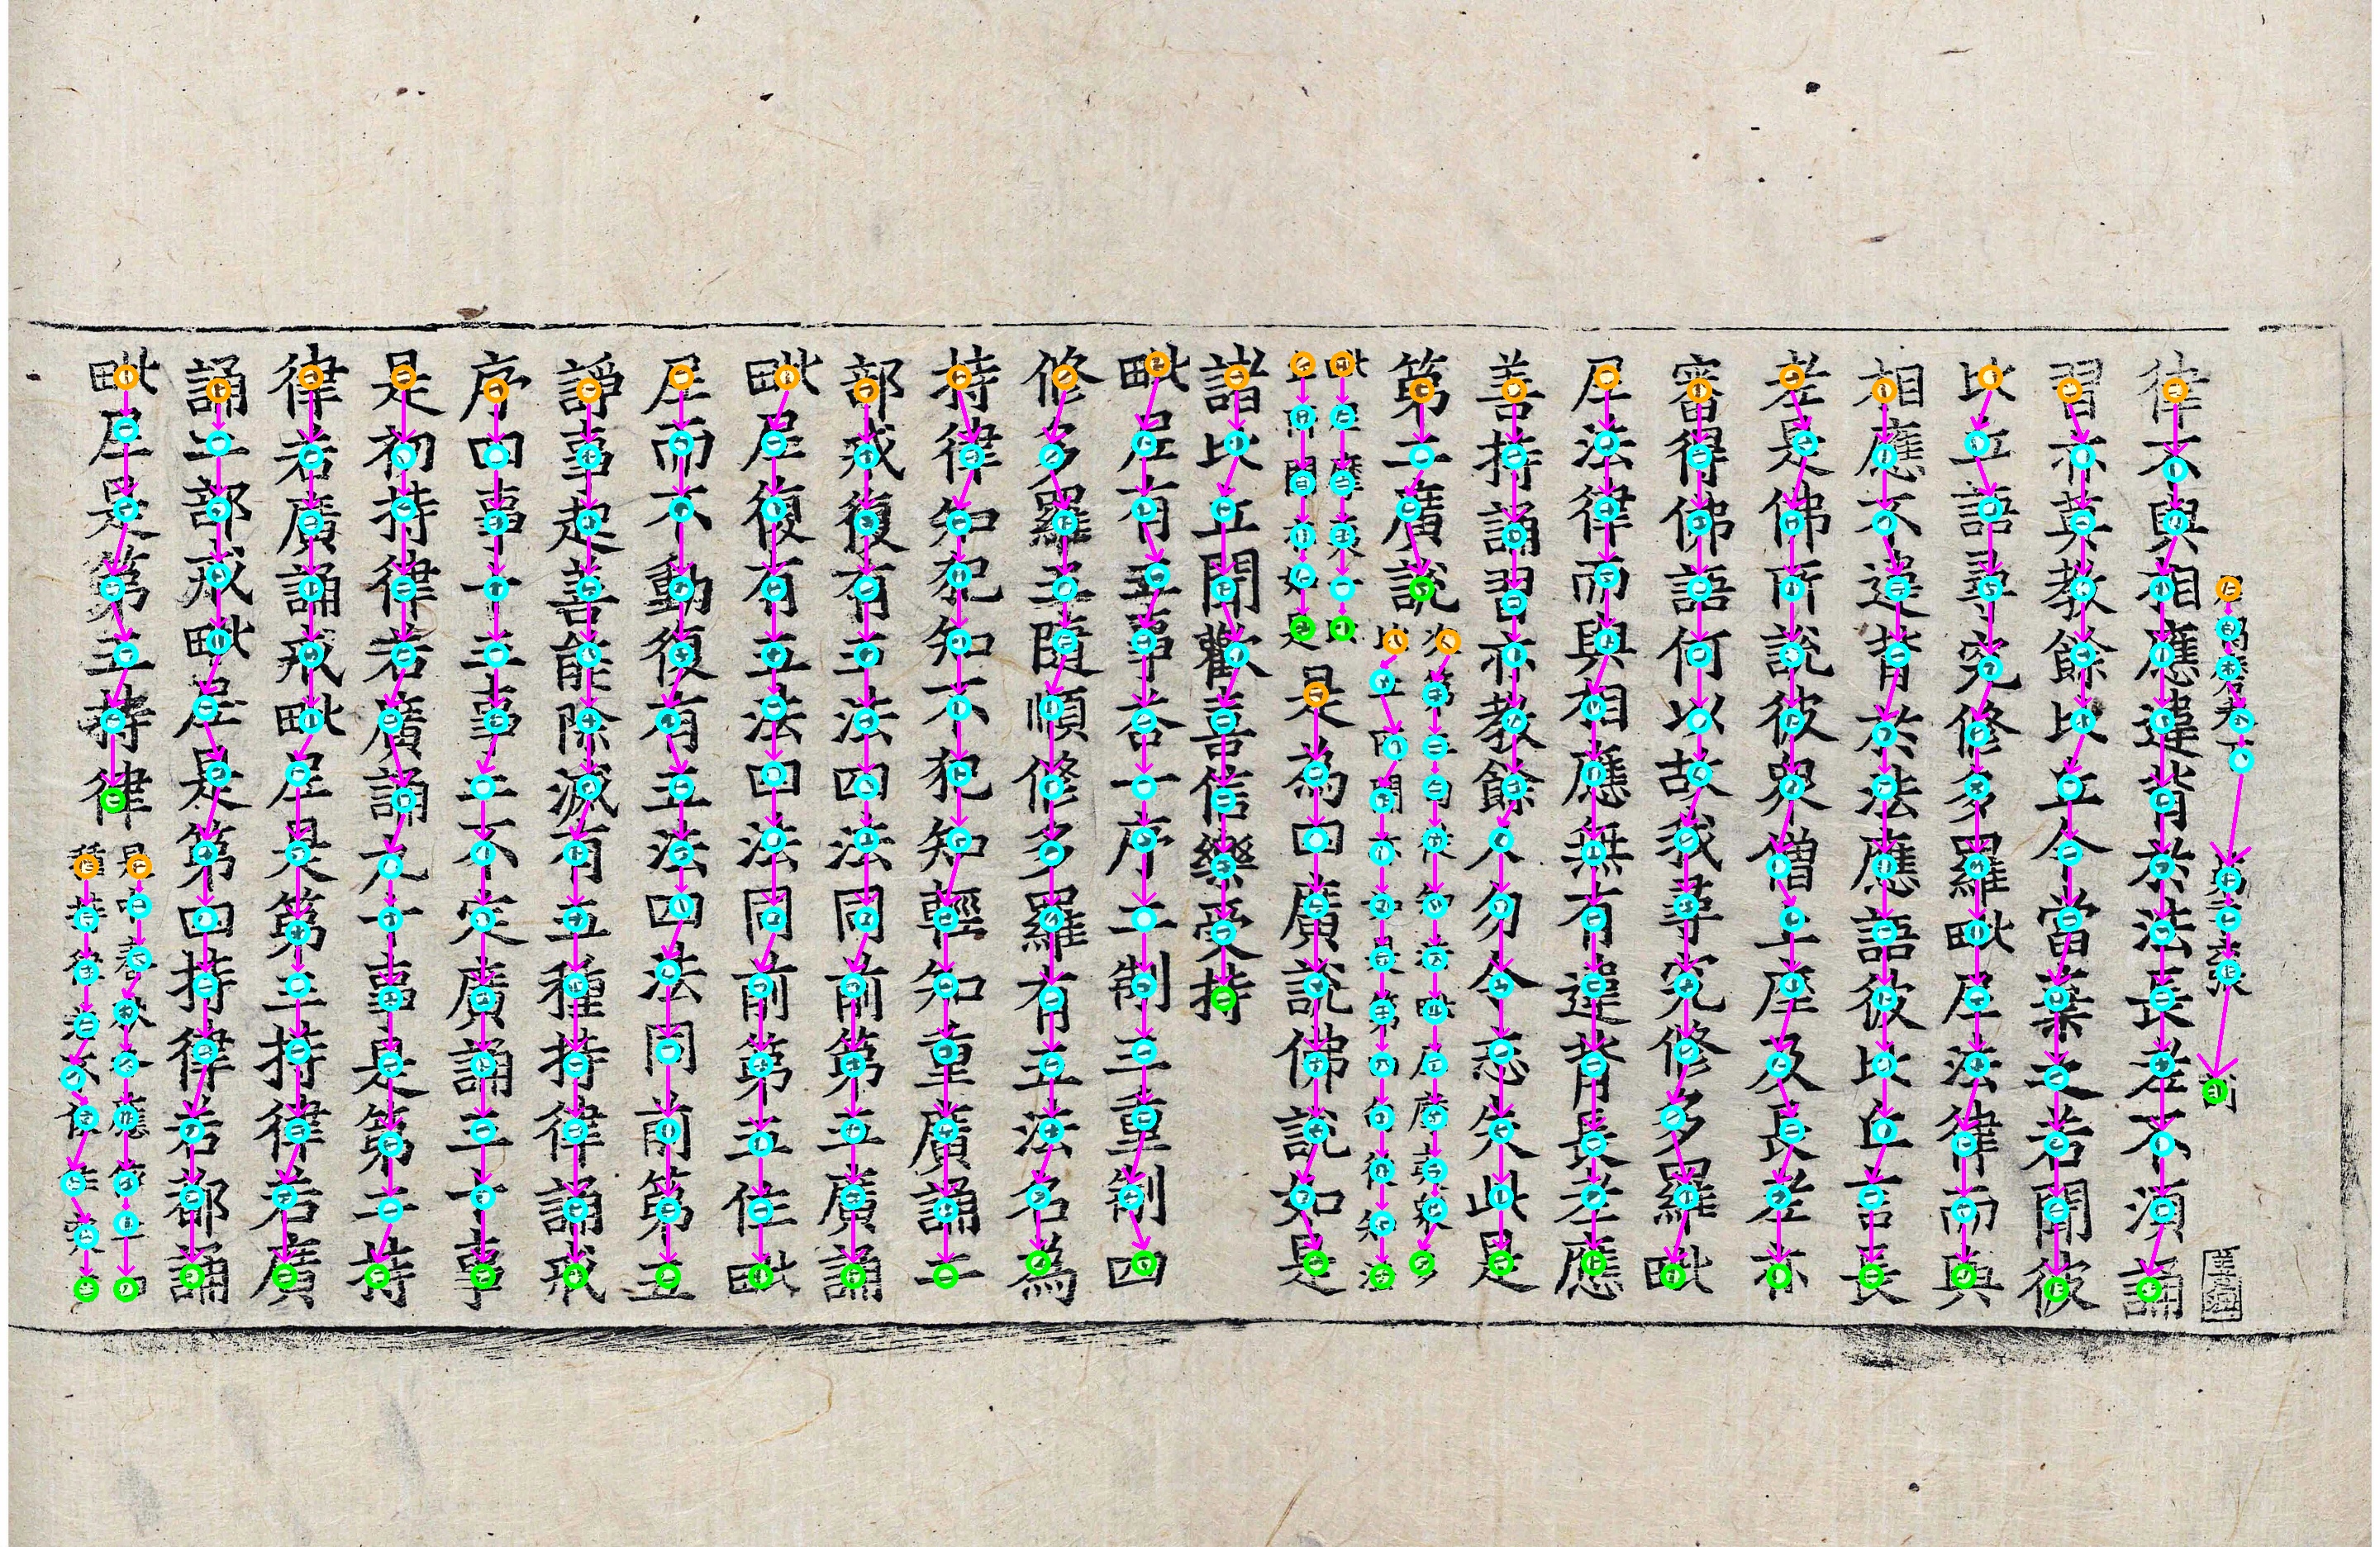 第三張
律不與相應違背於法長老不須誦
習亦莫教餘比丘今當棄之若聞彼
比丘語尋究修多羅毗尼法律而與
相應不違背於法應語彼比丘言長
老是佛所說彼衆僧上座及長老亦
審得佛語何以故我尋究修多羅毗
尼法律而與相應無有違背長老應
善持誦習亦教餘人勿令忘失此是
第二廣說
次第三句從知法毗尼摩夷衆多
比丘所聞亦如是第四句從知法
毗尼摩夷一比
丘所聞亦如是
是為四廣說佛說如是
諸比丘聞歡喜信樂受持
毗尼有五事答一序二制三重制四
修多羅五隨順修多羅有五法名為
持律知犯知不犯知輕知重廣誦二
部戒復有五法四法同前第五廣誦
毗尼復有五法四法同前第五住毗
尼而不動復有五法四法同前第五
諍事起善能除滅有五種持律誦戒
序四事十三事二不定廣誦三十事
是初持律若廣誦九十事是第二持
律若廣誦戒毗尼是第三持律若廣
誦二部戒毗尼是第四持律若都誦
毗尼是第五持律
是中春秋冬應依上四
種持律若不依住突吉